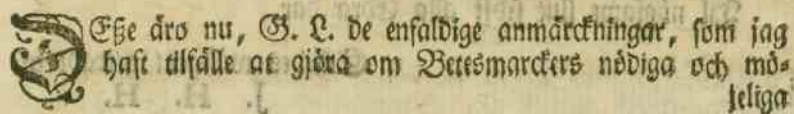 DEße äro nu, G. L. de enfaldige anmärckningar, som jag
haft tilfälle at gjöra om Betesmarckers nödiga och mö=
jeliga